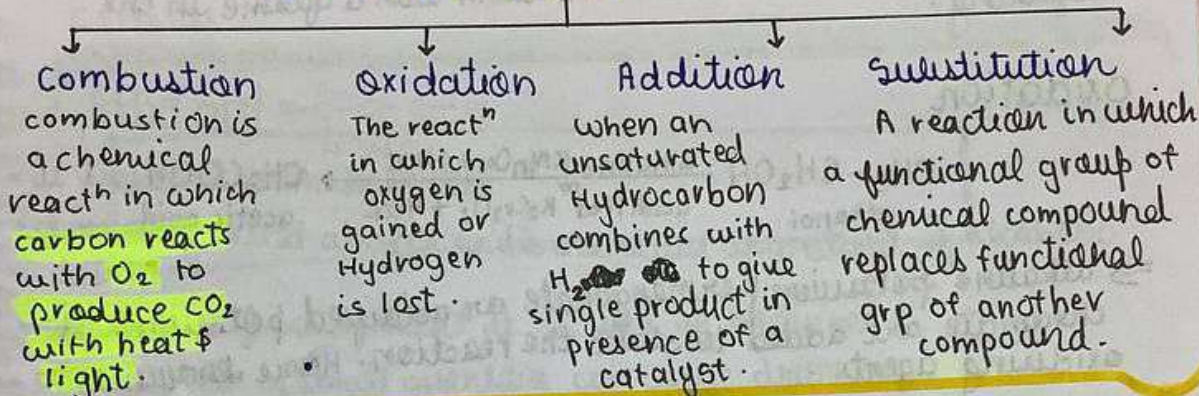 Combustion
combustion is
a chemical
reactn in which
carbon reacts
with O2 to
produce CO2
with heat $
light.
Oxidation
The reactn
in which
oxygen is
gained or
Hydrogen
is lost.
Addition
when an
unsaturated
Hydrocarbon
combines with
H2 to give
single product in
presence of a
catalyst.
Substitution
A reaction in which
a functional group of
chemical compound
replaces functional
grp of another
compound.